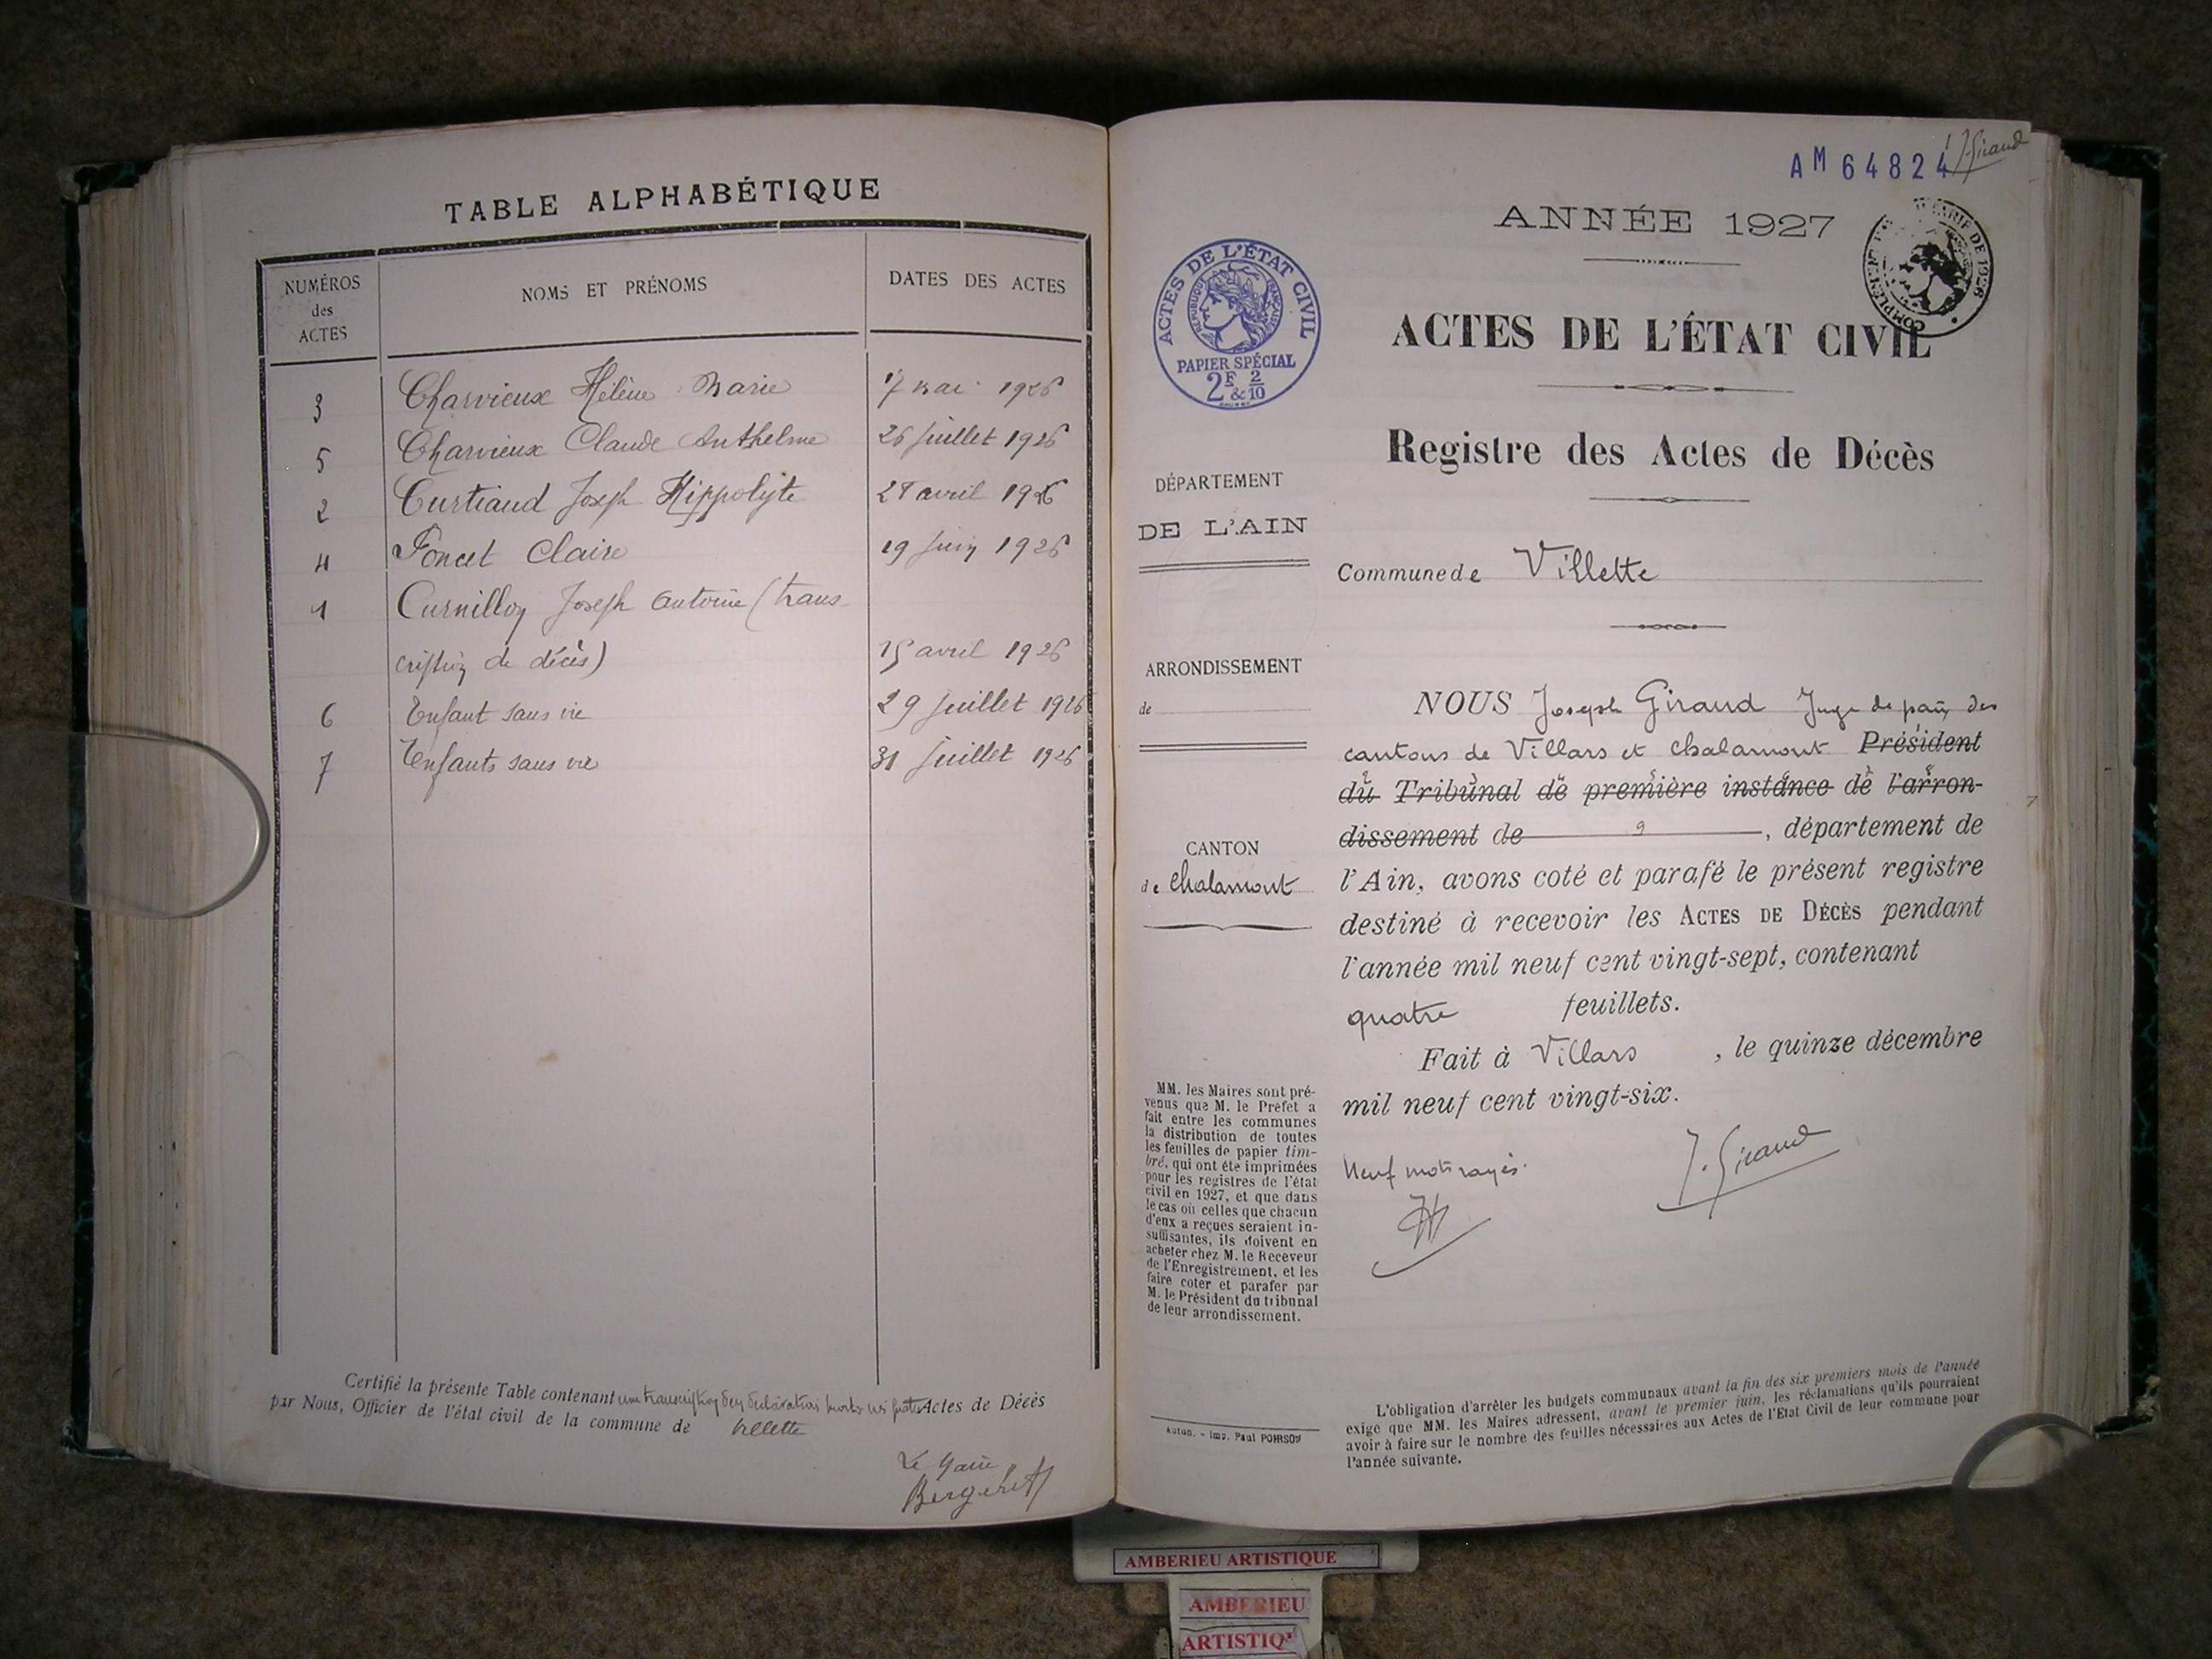 TABLE ALPHABÉTIQUE
NUMÉROS
des
ACTES
NOMS ET PRÉNOMS
DATES DES ACTES
3 Charvieux Hélène Marie 17 mai 1926
5 Charvieux Claude Anthelme 26 juillet 1926
2 Curtiaud Joseph Hippolyte avril 1926
4 Foncet Claire 19 juin 1926
1 Curnillon Joseph Antoine (trans-
cription de décès) 15 avril 1926
6 Enfant sans vie 29 juillet 1926
7 Enfants sans vie 31 juillet 1926
Certifié la présente Table contenant une transcription Actes de Décès
par Nous, Officier de l'état civil de la commune de Villette
Le Maire
Bergeret
AM 64824
1 J. Giraud
ANNÉE 1927
COMPLÉMENT TARIF DE 1926
ACTES DE L'ÉTAT CIVIL
RÉPUBLIQUE FRANÇAISE
PAPIER SPÉCIAL
2F & 2/10
ACTES DE L'ÉTAT CIVIL
Registre des Actes de Décès
DÉPARTEMENT
DE L'AIN
Commune de Villette
ARRONDISSEMENT
de
CANTON
de Chalamont
NOUS Joseph Giraud Juge de paix des
cantons de Villars et Chalamont Président
du Tribunal de première instance de l'arron-
dissement de 9, département de
l'Ain, avons coté et parafé le présent registre
destiné à recevoir les ACTES DE DÉCÈS pendant
l'année mil neuf cent vingt-sept, contenant
quatre feuillets.
Fait à Villars, le quinze décembre
mil neuf cent vingt-six.
Neuf mots rayés.
J. Giraud
MM. les Maires sont pré-
venus que M. le Préfet a
fait entre les communes
la distribution de toutes
les feuilles de papier tim-
bré, qui ont été imprimées
pour les registres de l'état
civil en 1927, et que dans
le cas où celles que chacun
d'eux a reçues seraient in-
suffisantes, ils doivent en
acheter chez M. le Receveur
de l'Enregistrement, et les
faire coter et parafer par
M. le Président du tribunal
de leur arrondissement.
Autun. - Imp. Paul POIRSON
L'obligation d'arrêter les budgets communaux avant la fin des six premiers mois de l'année
exige que MM. les Maires adressent, avant le premier juin, les réclamations qu'ils pourraient
avoir à faire sur le nombre des feuilles nécessaires aux Actes de l'Etat Civil de leur commune pour
l'année suivante.
AMBERIEU ARTISTIQUE
AMBERIEU
ARTISTIQ